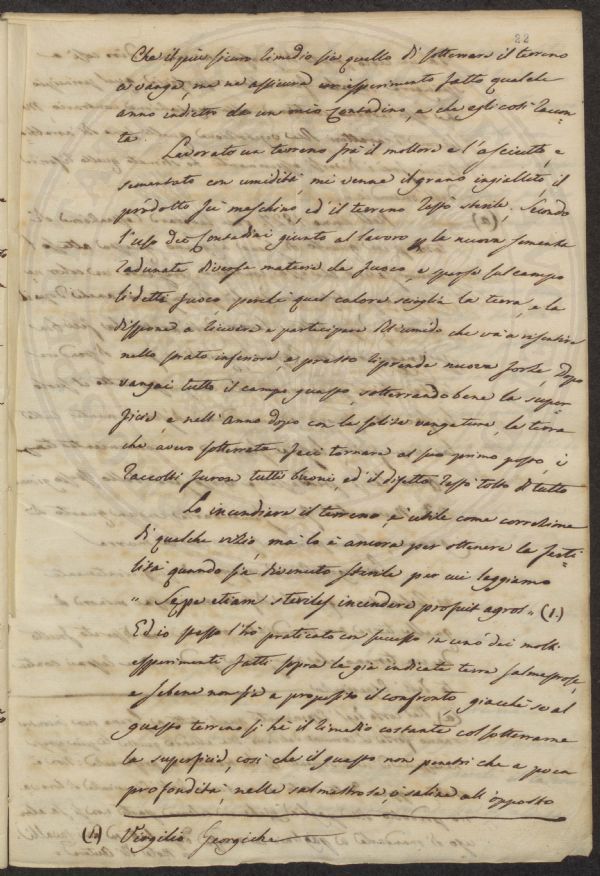 22
Che il più sicuro rimedio sia quello di sotterrare il terreno
a vanga, me ne assicura un esperimento fatto qualche
anno indietro da un mio Contadino, e che egli così raccon=
ta.
Lavorato un terreno frà il mollore e l'asciutto, e
sementato con umidità, mi venne il grano ingiallito, il
prodotto fù meschino, ed il terreno restò sterile. Secondo
l'uso dei Contadini giunto al lavoro p. la nuova sementa
radunate diverse materie da fuoco, e sparse sul campo
li detti fuoco perche quel calore sciolga la terra, e la
dispone a ricevere e participare dell'umido che và a risentire
nello strato inferiore, e presto riprende nuova forza. Dopo
vangai tutto il campo guasto, sotterrando bene la super=
ficie, e nell'anno dopo con la solita vangatura, la terra
che avevo sotterrata feci tornare al suo primo posto, i
raccolti furon tutti buoni, ed il difetto restò tolto di tutto
Lo incendiare il terreno, è utile come correzione
di qualche vizio, ma lo è ancora per ottenere la ferti=
lità quando sia divenuto sterile per cui leggiamo
" Sepe etiam steriles incendere profuit agros " (1.)
Ed io spesso l'hò praticato con successo in uno dei molti
esperimenti fatti sopra le già indicate terre salmastrose,
e sebene non sia a proposito il confronto, giacchè se al
guasto terreno si hà il rimedio costante col sotterrarne
la superficie, così che il guasto non penetri che a poca
profondità, nelle salmastrose, o saline all'opposto
(1.) Virgilio Georgiche